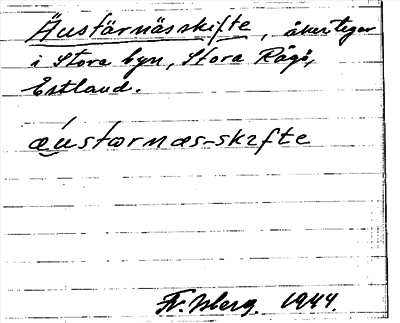 Äustärnässkifte, åkertegar
i Stora byn, Stora Rågö,
Estland.
ǽu̯stærnæs-skɪfte
1944.